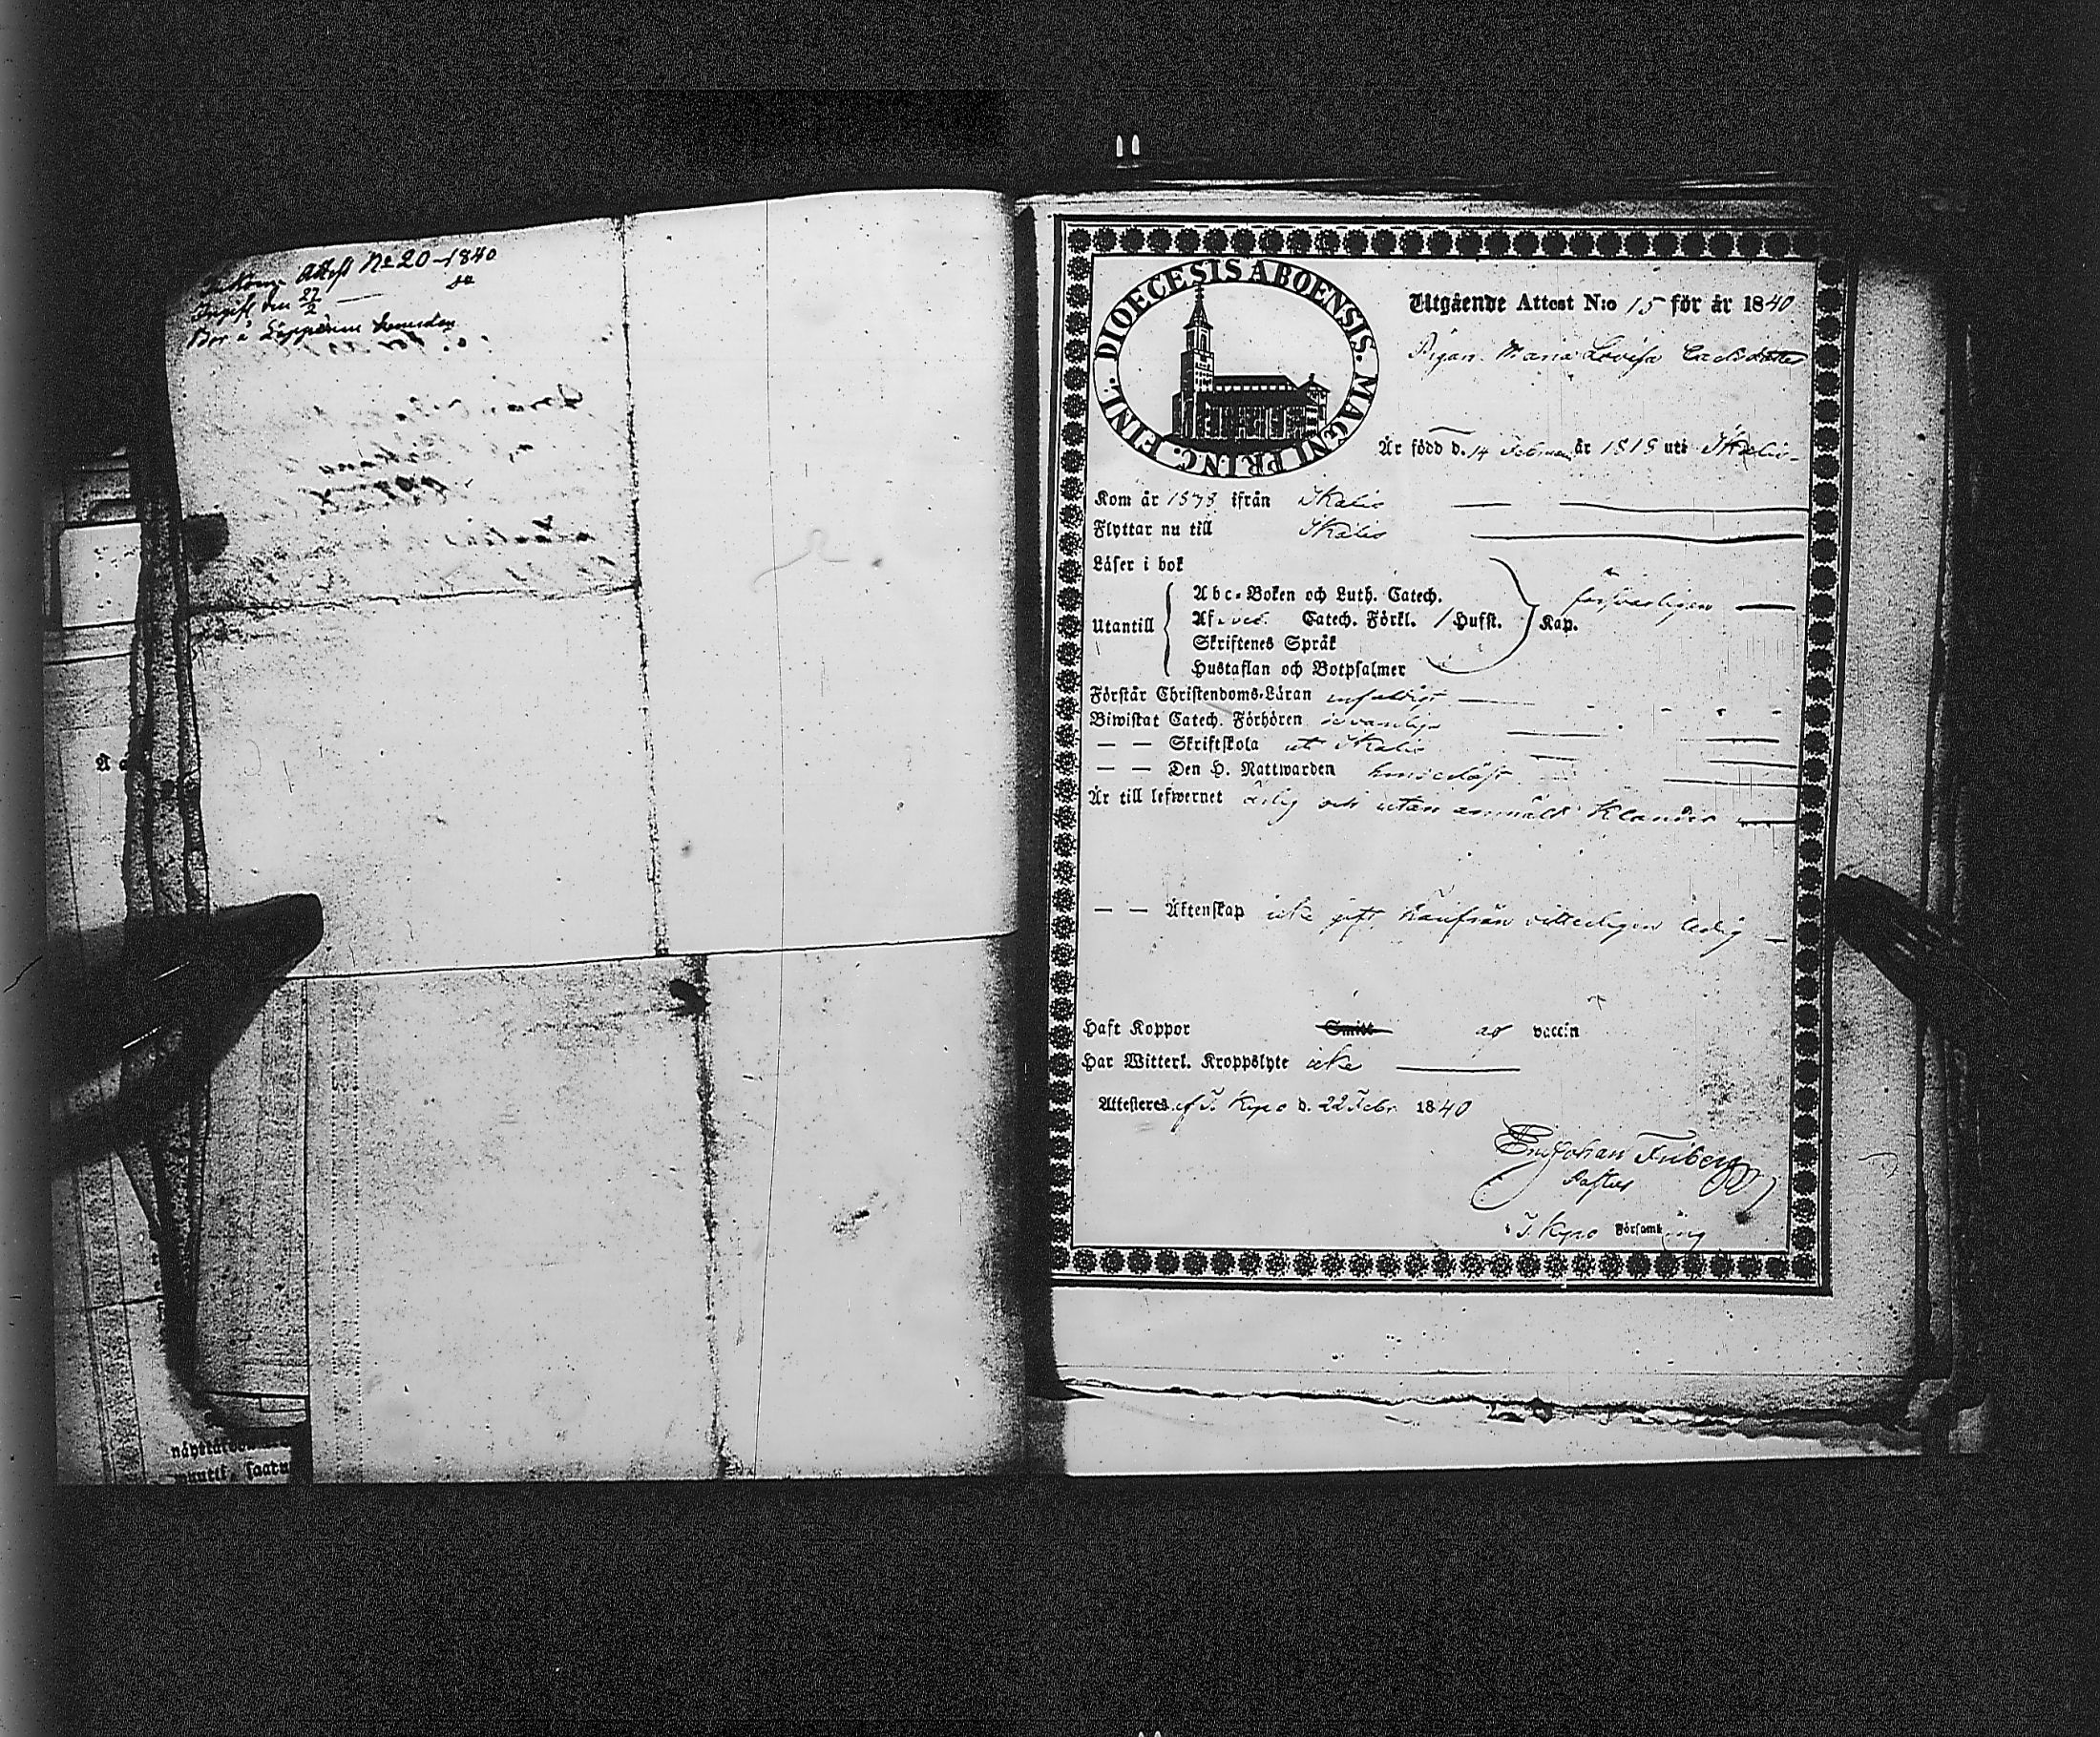 Attest No 20 – 1840
Ingift den 27/2
Bor å
nåhtäwä
muutti, saatu
DIOECESIS ABOENSIS. MAGNI PRINC. FINL.
Utgående Attest N:o 15 för år 1840
Pigan Maria Lovisa
Är född d. 14 Februari år 1818 uti Ikalis
Kom år 1838 ifrån Ikalis
Flyttar nu till Ikalis
Läser i bok
Abc-Boken och Luth. Catech. försvarligen
Utantill Af Catech. Förkl. Hufst. Kap.
Skriftenes Språk
Hustaflan och Botpsalmer
Förstår Christendoms-Läran enfaldigt
Biwistat Catech. Förhören
— — Skriftskola uti Ikalis
— — Den H. Nattwarden
Är till lefwernet ärlig och utan anmäldt klander
— — Äktenskap icke gift, härifrån vitterligen ledig
Haft Koppor Smitt af vaccin
Har Witterl. Kroppslyte icke
Attesteras af T. Kyro d. 22 Febr. 1840
Johan Friberg
Pastor
i T. Kyro Församling